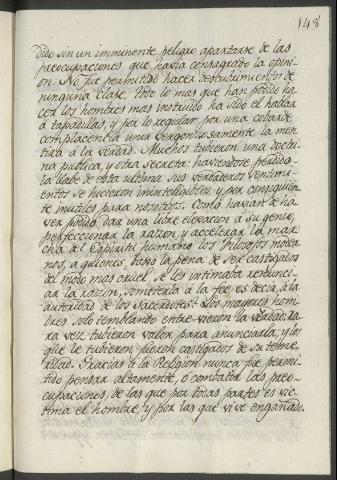 148
dido sin un imminente peligro apartarse de las
preocupaciones que havia consagrado la opini-
on. No fue permitido hacer descubrimientos de
ninguna clase. Todo lo mas que han podido ha-
cer los hombres mas instruido ha sido el hablar
a tapadillas, y por lo regular por una cobarde
complacencia unir vergonzosamente la men-
tira à la verdad. Muchos tubieron una doctri-
na publica, y otra secreta: haviendose perdido
la llabe de esta ultima sus verdaderos sentimi-
entos se hicieron ininteligibles y por consiguien-
te inutiles para nosotros. Como havian de ha-
ver podido dar una libre elevacion à su genio,
perfeccionar la razon, y accelerar la mar-
cha del Espiritu humano los Filosofos moder-
nos, a quienes, baxo la pena de ser castigados
del modo mas cruel, se les intimaba renunci-
ar la razon, someterla à la fee es decir, à la
autoridad de los Sacerdotes. Los mayores hom-
bres solo temblando entrevieron la verdad: ra-
ra vez tubieron valor para anunciarla, y los
que le tubieron fueron castigados de su teme-
ridad. Gracias à la Religion nunca fue permi-
tido pensar altamente, o combatir las preo-
cupaciones, de las que por todas partes es vic-
tima el hombre, y por las que vive engañado.